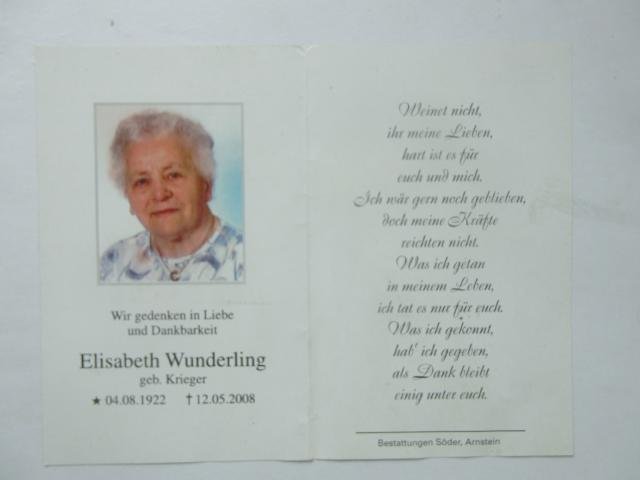 Wir gedenken in Liebe
und Dankbarkeit
Elisabeth Wunderling
geb. Krieger
★ 04.08.1922 † 12.05.2008
Weinet nicht,
ihr meine Lieben,
hart ist es für
euch und mich.
Ich wär gern noch geblieben,
doch meine Kräfte
reichten nicht.
Was ich getan
in meinem Leben,
ich tat es nur für euch.
Was ich gekonnt,
hab' ich gegeben,
als Dank bleibt
einig unter euch.
Bestattungen Söder, Arnstein